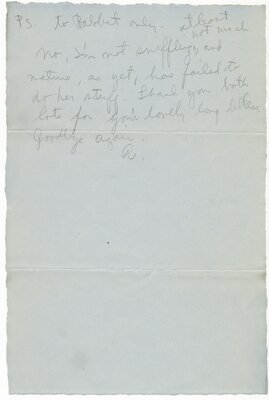 PS to Rabbit only. at least
not much
No, I'm not sniffling and
nature, as yet, has failed to
do her stuff. Thank you both
lots for your lovely long letters.
Goodbye again.
R.